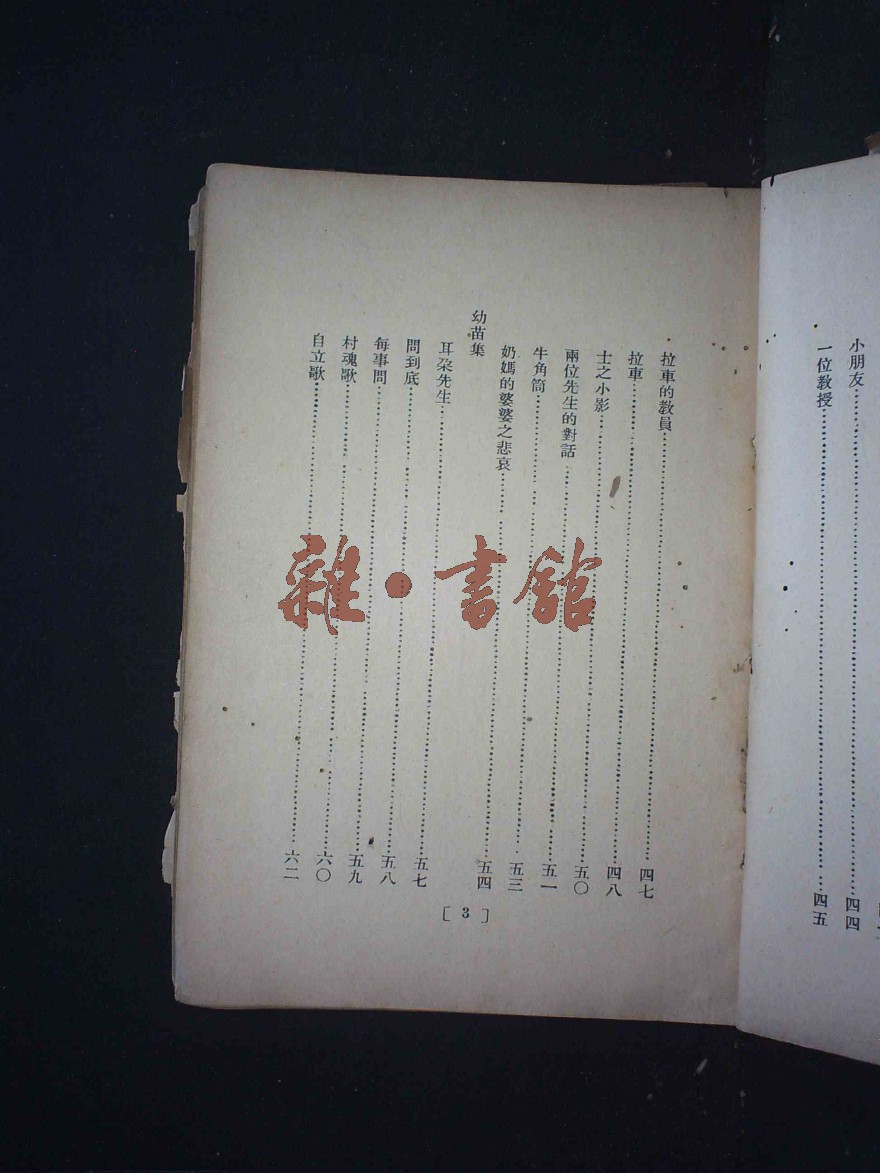 小朋友……四四
一位教授……四五
拉車的教員……四七
拉車……四八
士之小影……五〇
兩位先生的對話……五一
牛角筒……五三
奶媽的婆婆之悲哀……五四
幼苗集
耳朶先生……五七
問到底……五八
每事問……五九
村魂歌……六〇
自立歌……六二
[3]
雜·書館